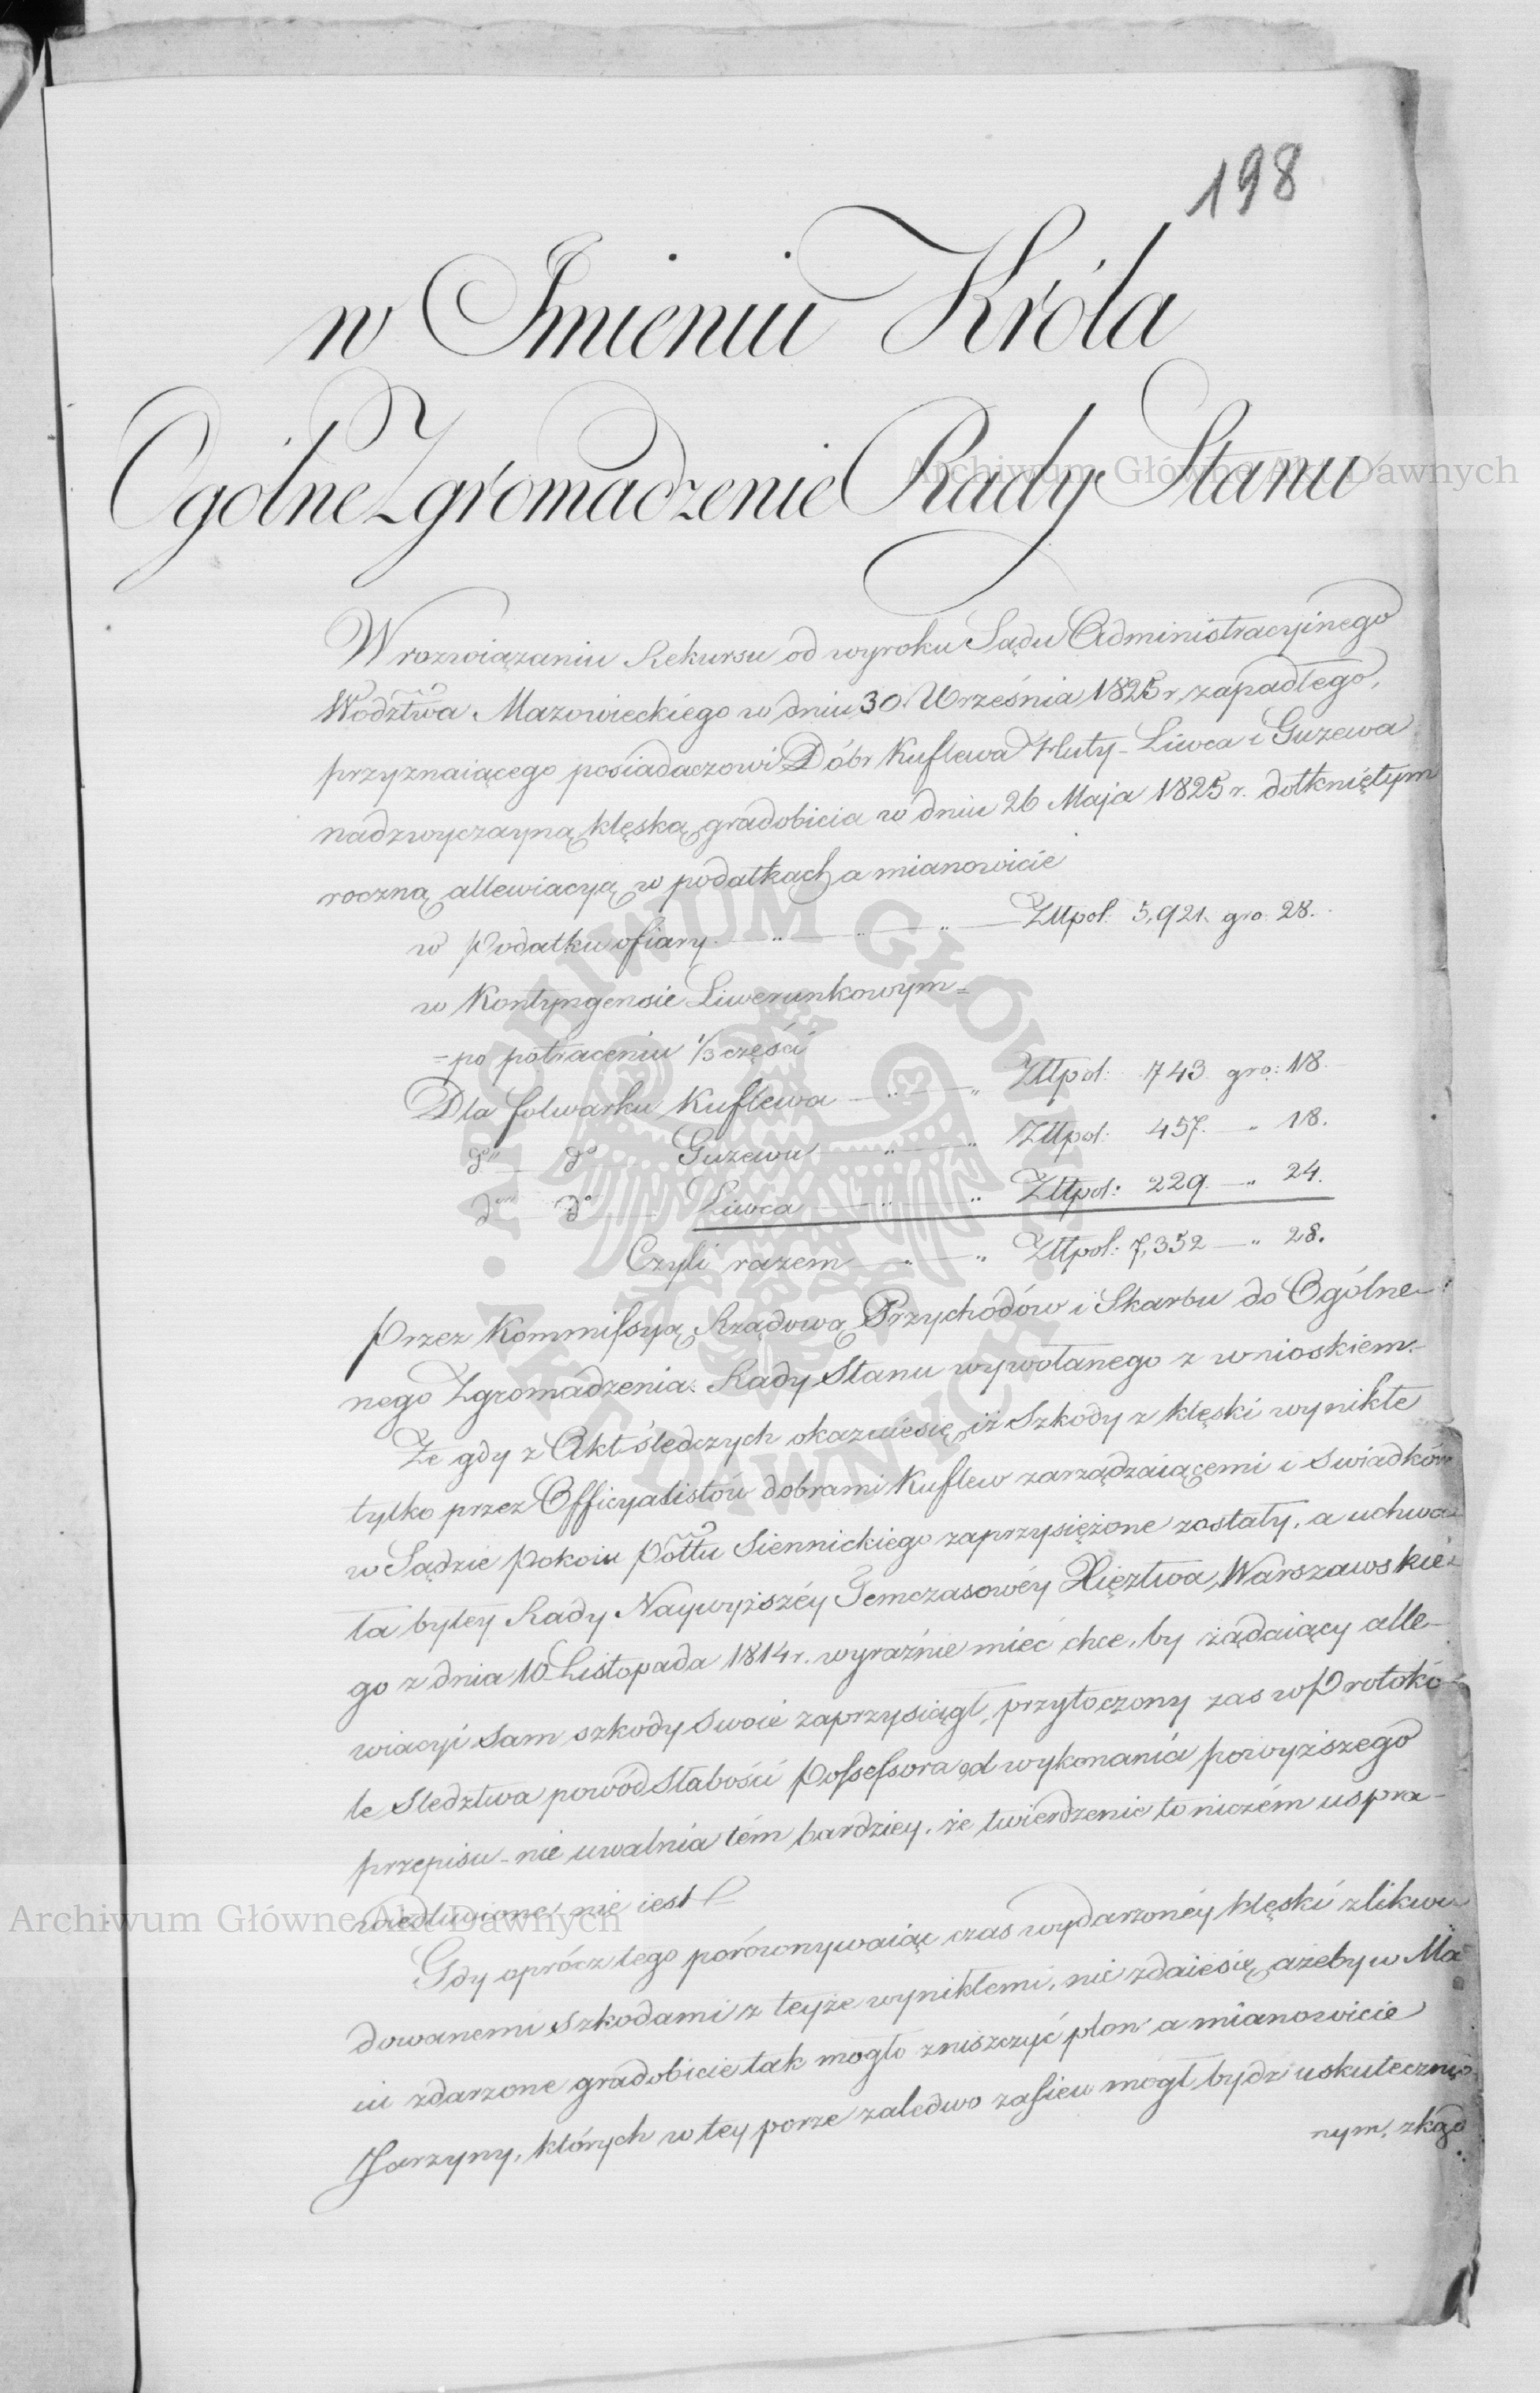 198
w Imieniu Króla
Ogólne Zgromadzenie Rady Stanu
W rozwiązaniu Rekursu od wyroku Sądu Administracyinego
Wodztwa Mazowieckiego w dniu 30 Września 1825 r. zapadłego,
przyznaiącego posiadaczowi Dóbr Kuflewa Huty-Liwca i Guzewa
nadzwyczayną klęską gradobicia w dniu 26 Maja 1825 r. dotkniętym
roczną allewiacyą w podatkach a mianowicie
w Podatku ofiary — „ — „ — „ — Złłpol: 5,921. gro: 28.
w Kontyngensie Liwerunkowym =
= po potraceniu 1/3 części
Dla folwarku Kuflewa — „ — „ Złłpol: 743 gro: 18.
do — do Guzewa — „ — „ Złłpol: 457. — „ 18.
do — do — Liwca — „ — „ Złłpol: 229. — „ 24.
Czyli razem — „ — „ Złłpol: 7,352 — „ 28.
Przez Kommissyą Rządową Przychodów i Skarbu do Ogólne-
nego Zgromadzenia Rady Stanu wywołanego z wnioskiem.-
Że gdy z Akt śledczych okazuiesię, iż Szkody z klęski wynikłe
tylko przez Officyalistów dobrami Kuflew zarządzaiącemi i swiadków
w Sądzie Pokoiu Pottu Siennickiego zaprzysiężone zostały, a uchwa-
ła byłey Rady Naywyższéy Temczasowéy Xięztwa Warszawskie-
go z dnia 10 Listopada 1814 r. wyraźnie mieć chce, by żądaiący alle-
wiacyi sam szkody swoie zaprzysiągł, przytoczony zas w Protokó-
le Sledztwa powód Słabości Possessora od wykonania powyższego
przepisu - nie uwalnia tém bardziey, że twierdzenie to niczém uspra-
wiedliwione nie iest
Gdy oprócz tego porównywaiąc czas wydarzonéy klęski z likwi-
dowanemi szkodami z teyże wynikłemi, nie zdaiesię, ażeby w Ma-
iu zdarzone gradobicie tak mogło zniszczyć plon a mianowicie
Jarzyny, których w tey porze zaledwo zasiew mógł bydź uskutecznio-
nym, zkąd
Archiwum Główne Akt Dawnych
ARCHIWUM GŁÓWNE AKT DAWNYCH
Archiwum Główne Akt Dawnych